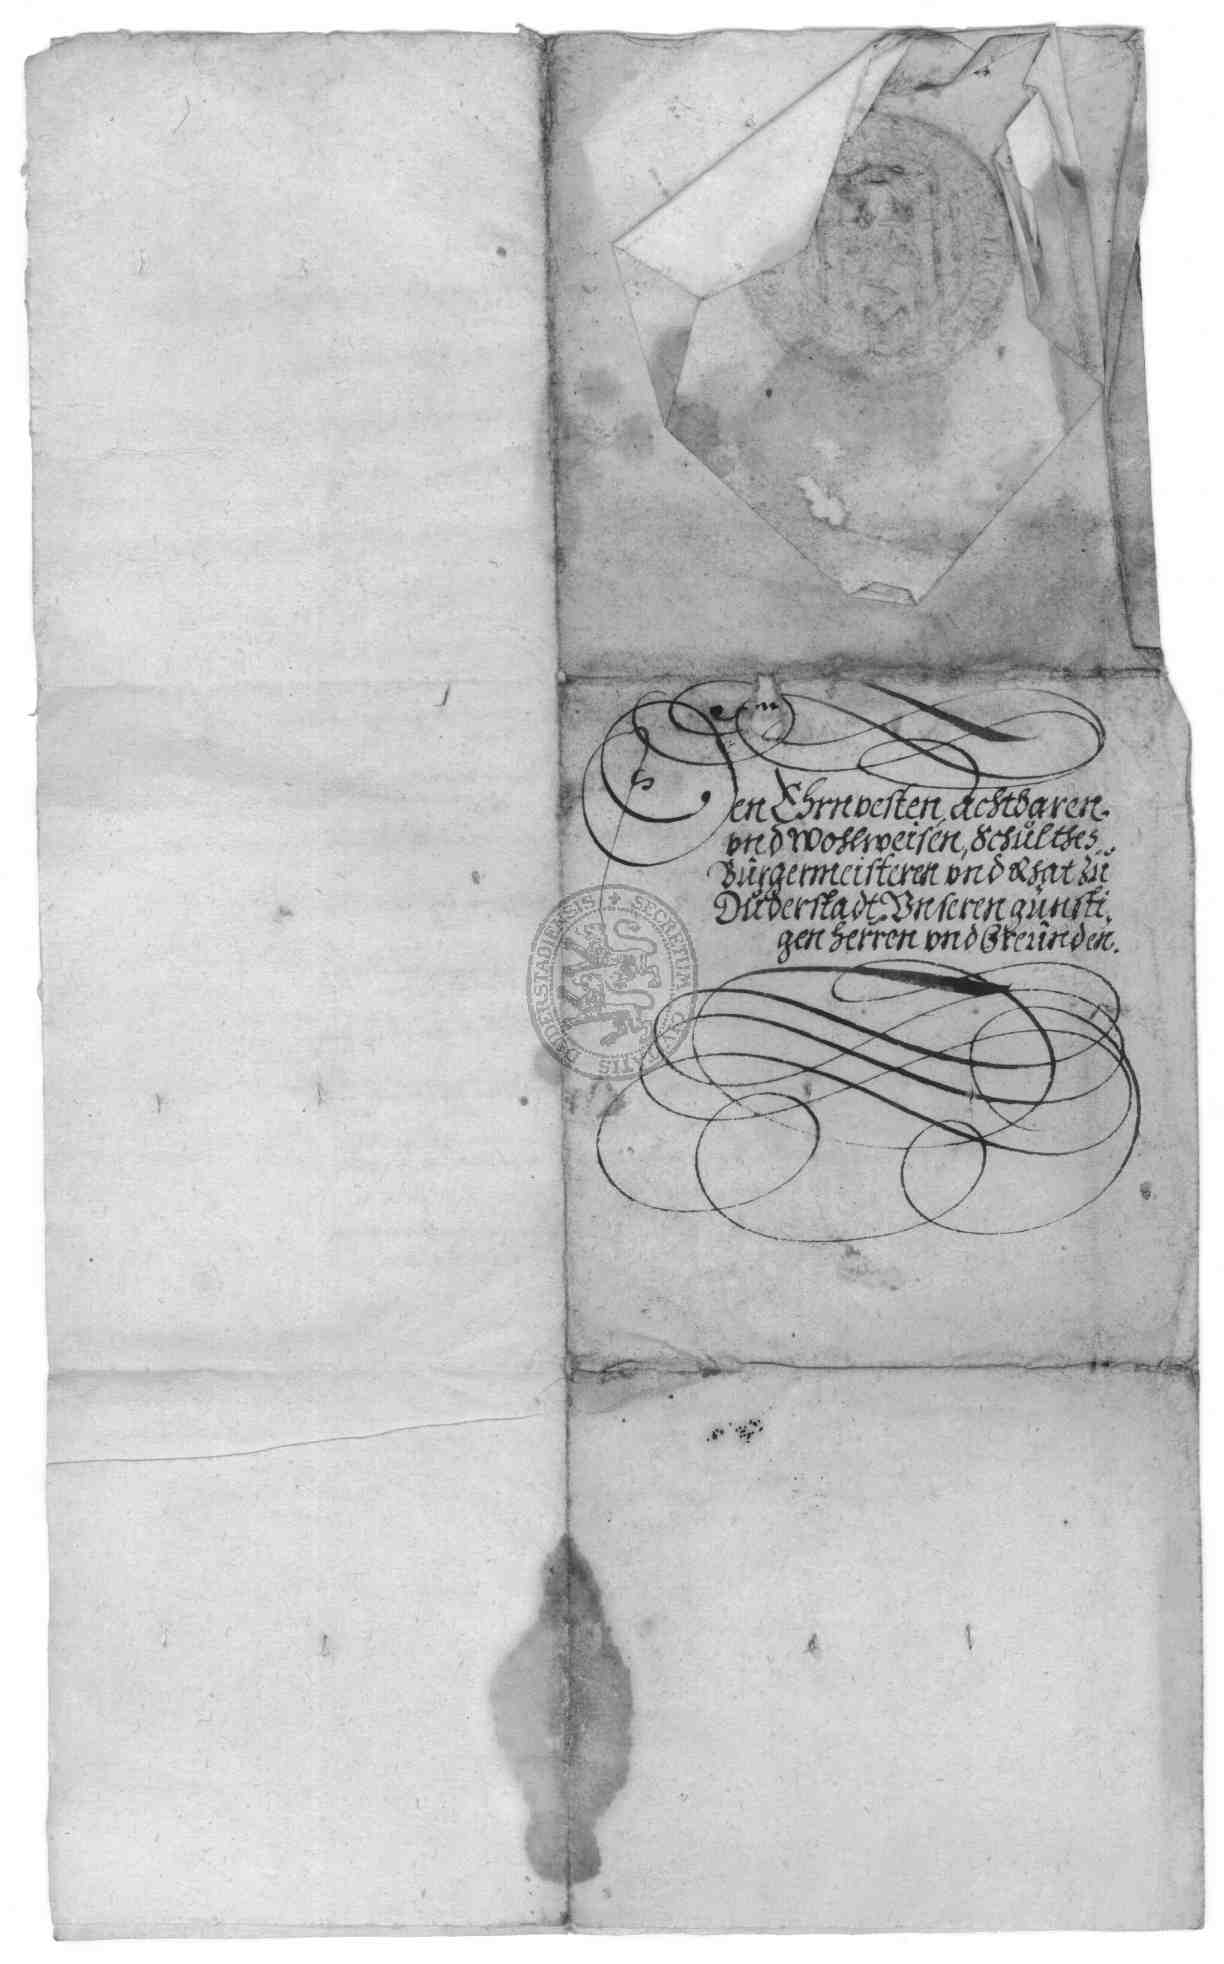 Den Ehrnvesten, Achtbaren,
vnd Wohlweisen, Schulthes,
Bürgermeisteren vnd Rhat zu
Duderstadt, Vnseren günsti,
gen Herren vnd Freunden.
SECRETUM CIVITATIS DUDERSTADIENSIS